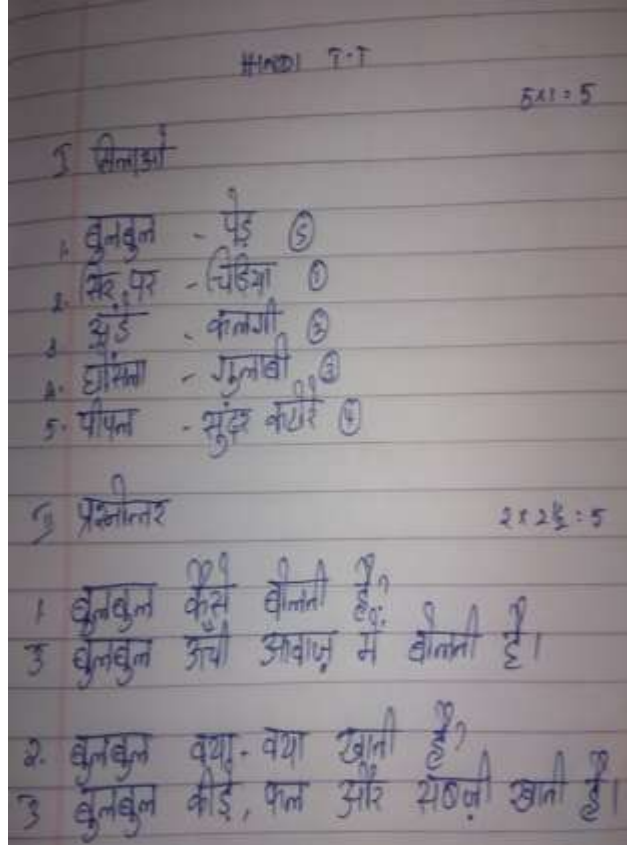 HINDI T.T
5x1=5
I मिलाओ
1. बुलबुल - पेड़ ⑤
2. सिर पर - चिडिया ①
3 अंडे - कलगी ②
4. घोंसला - गुलाबी ③
5. पीपल - सुंदर कटोरे ④
II प्रश्नोत्तर 2 x 2½ = 5
1 बुलबुल कैसे बोलती है?
उ बुलबुल ऊँची आवाज़ में बोलती है।
2. बुलबुल क्या-क्या खाती है?
उ बुलबुल कीड़े, फल और सब्ज़ी खाती है।